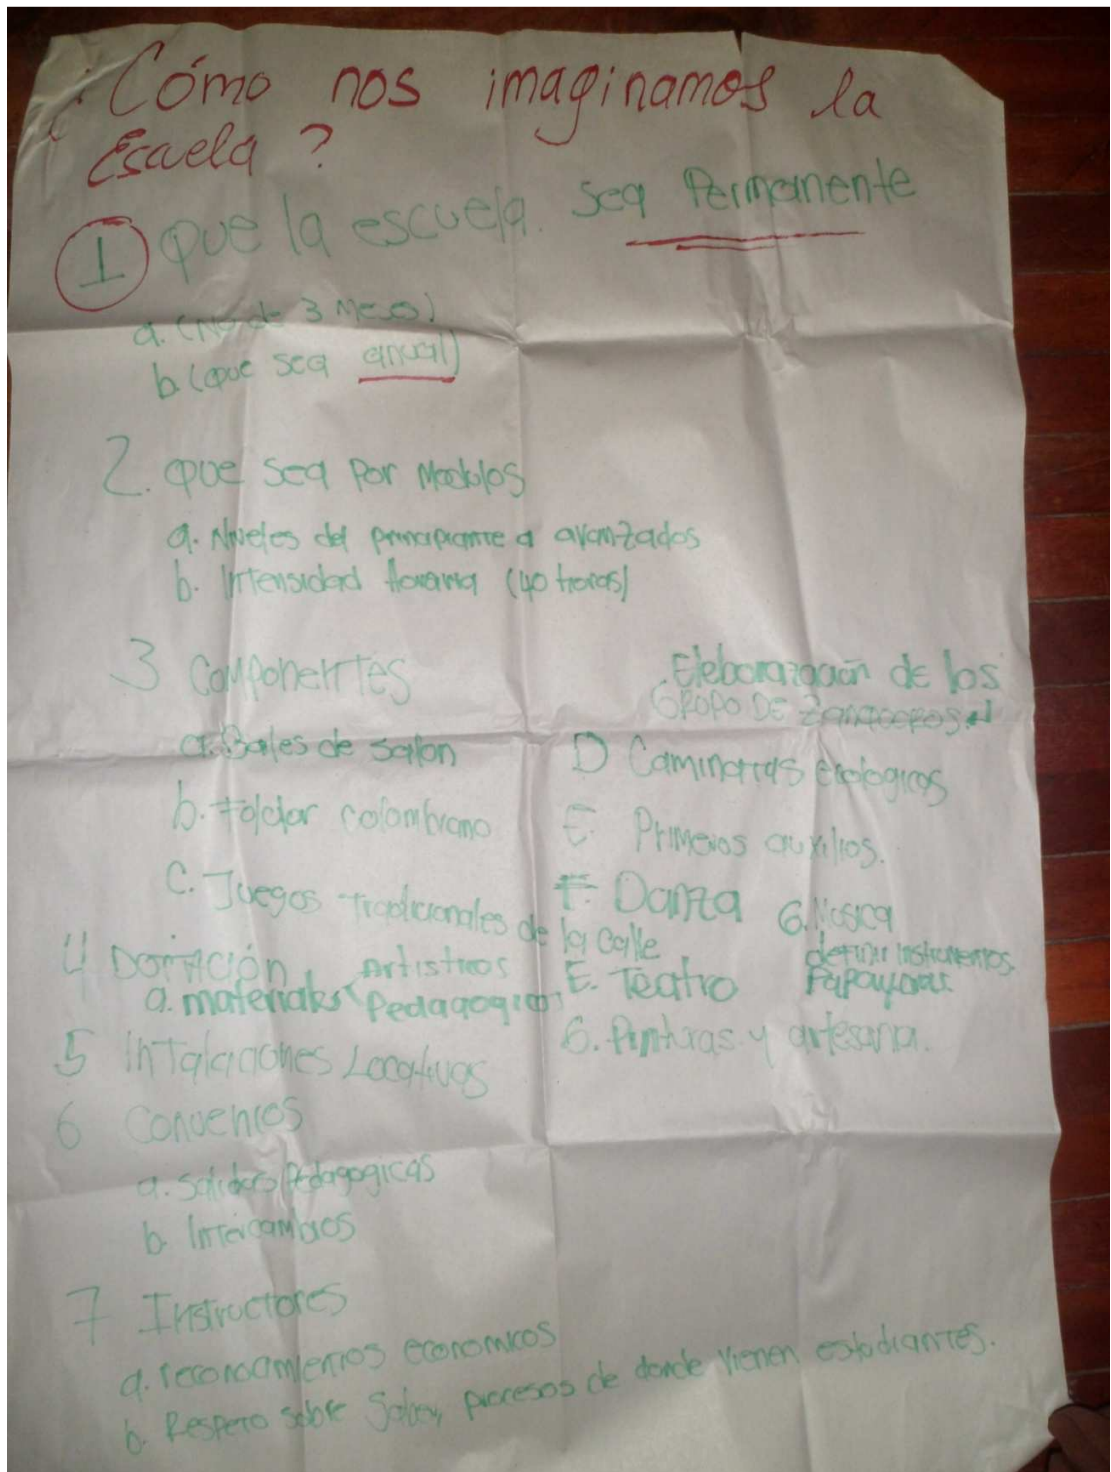 ¿Cómo nos imaginamos la
Escuela?
1 que la escuela. sea Permanente
a. (No de 3 Meses)
b. (que sea anual)
2. que sea Por Modulos
a. Niveles del principiante a avanzados
b. Intensidad Horaria (40 horas)
3 Componentes
a. Bailes de salon
b. Folclor colombiano
C. Juegos Tradicionales de la calle
Eleborazación de los
GRUPO DE ZANQUEROS
D Caminatas ecologicas
E. Primeros auxilios.
F. Danza
G. Musica
definir Instrumentos.
Papayeras
E. Teatro
G. Pinturas y artesania.
4 Dotación Artisticos
a. materiales Pedagogicos
5 Intalaciones Locativas
6 Convenios
a. Salidas Pedagogicas
b. Intercambios
7 Instructores
a. reconocimientos economicos
b. Respeto sobre Saber, procesos de donde vienen estudiantes.